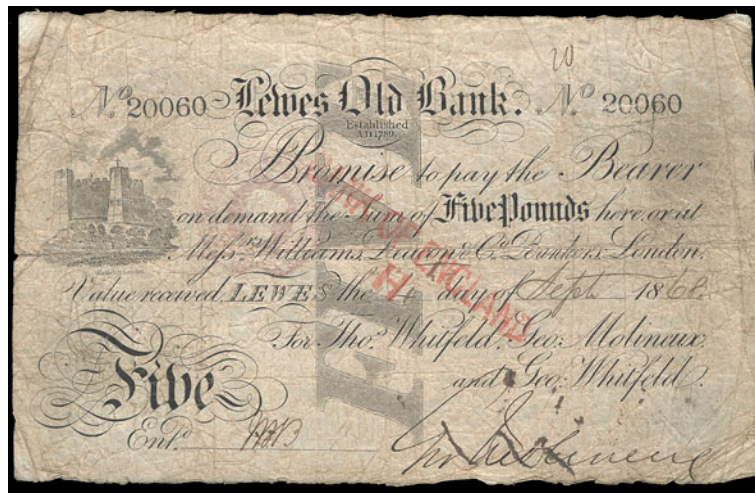 20
No 20060 Lewes Old Bank. No 20060
Established
A.D. 1789.
I Promise to pay the Bearer
on demand the Sum of Five Pounds here, or at
Messrs Williams, Deacon & Co. Bankers, London.
Value received, LEWES the 4 day of Sept 1868
For Thos. Whitfeld, Geo: Molineux
and Geo: Whitfeld.
Five
Entd.
Geo Molineux
BANK OF ENGLAND
H
FIVE